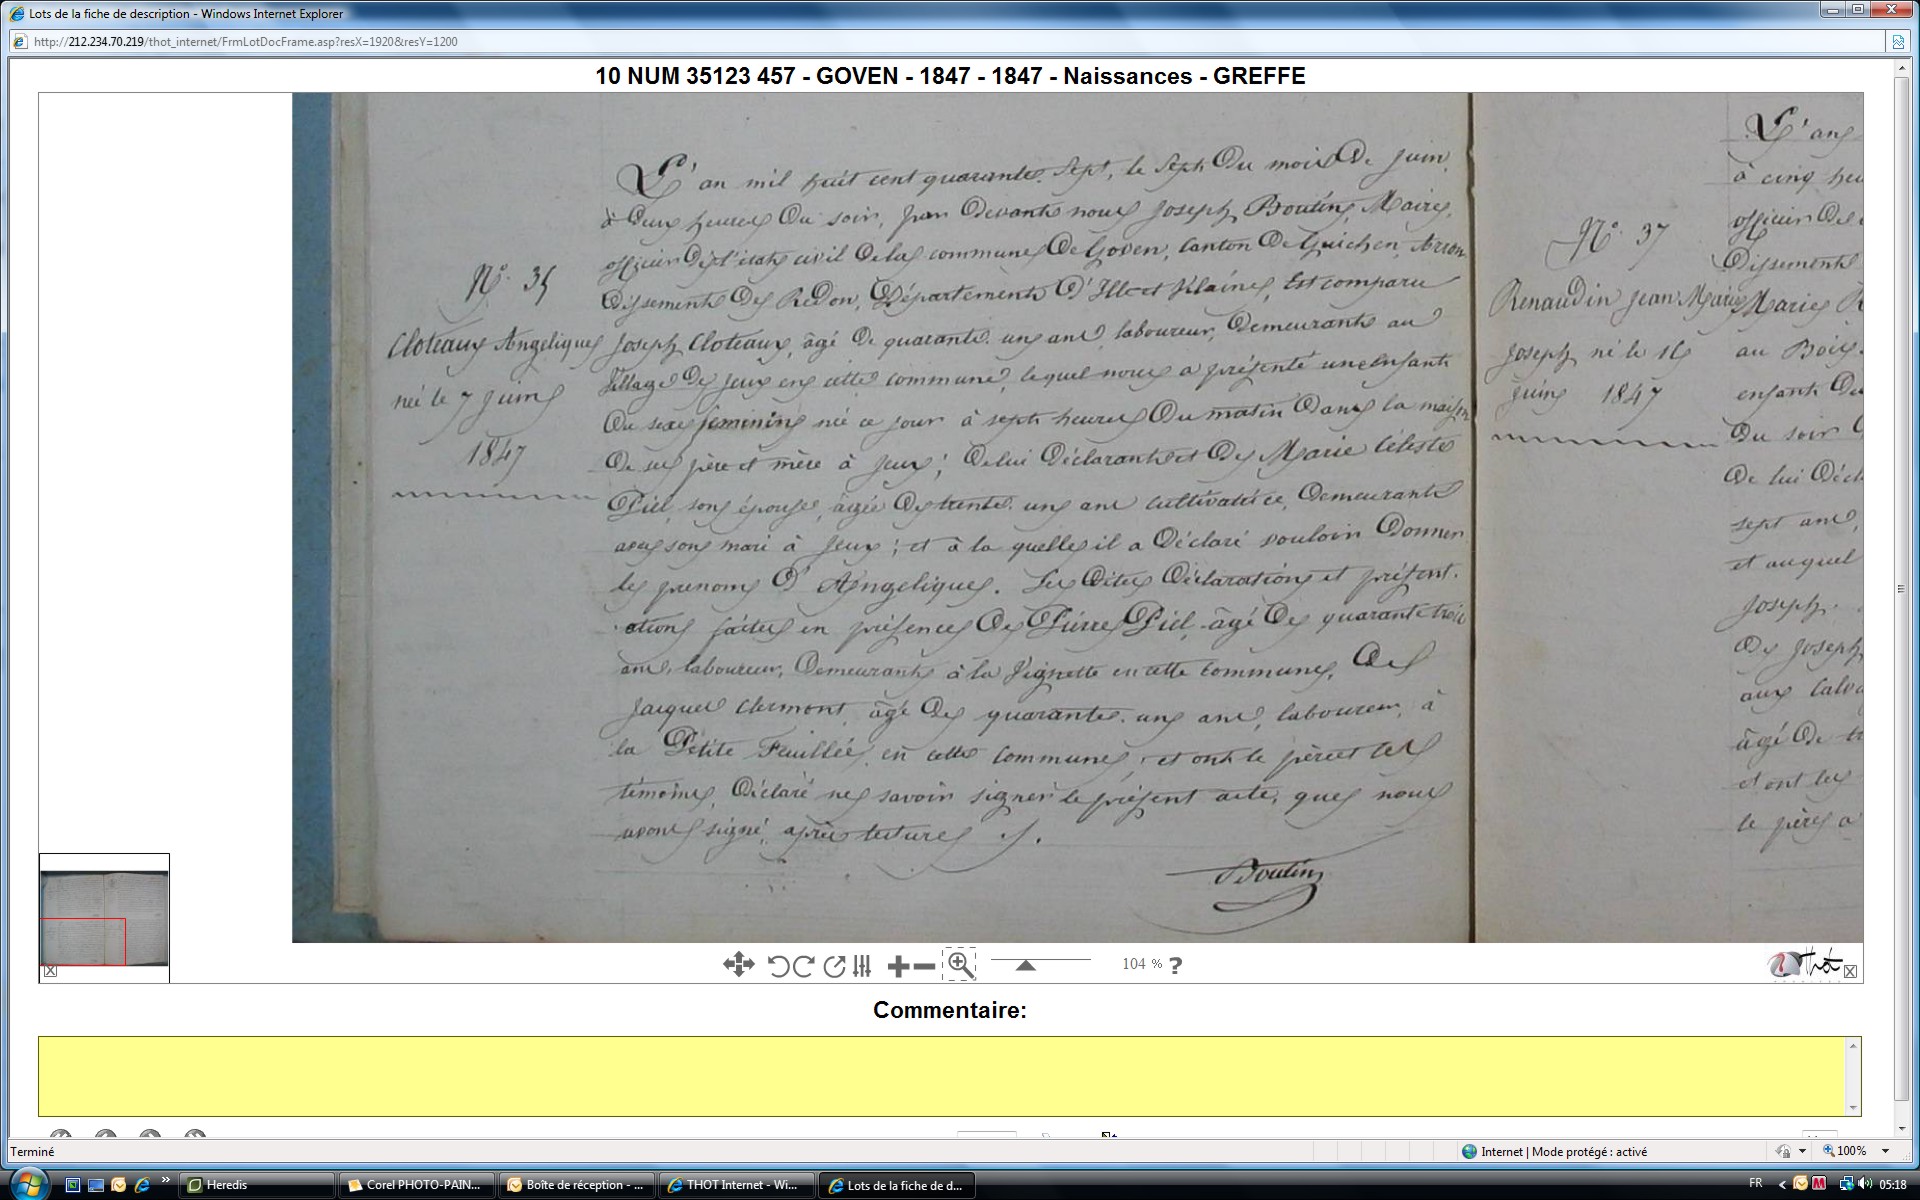 Lots de la fiche de description - Windows Internet Explorer
http://212.234.70.219/thot_internet/FrmLotDocFrame.asp?resX=1920&resY=1200
10 NUM 35123 457 - GOVEN - 1847 - 1847 - Naissances - GREFFE
N° 35
Cloteaux Angelique
née le 7 Juin
1847
L'an mil huit cent quarante sept, le sept du mois de Juin,
à deux heures du soir, par devant nous Joseph Boutin, Maire,
officier de l'état civil de la commune de Goven, canton de Guichen, Arron
dissement de Redon, Département d'Ille et Vilaine, Est comparu
Joseph Cloteaux, âgé de quarante un ans, laboureur, demeurant au
Village de Jeux en cette commune, lequel nous a présenté un enfant
du sexe féminin né ce jour à sept heures du matin dans la maison
de ses père et mère à Jeux; de lui déclarant et de Marie Céleste
Piel, son épouse, âgée de trente un ans cultivatrice, demeurant
avec son mari à Jeux; et à la quelle il a déclaré vouloir donner
les prenoms d'Angelique. Les dites déclaration et présent.
ation faites en présence de Pierre Piel, âgé de quarante trois
ans, laboureur, demeurant à la Vignette en cette commune, de
Jacques Clermont, âgé de quarante un ans, laboureur, à
la Petite Feuillée, en cette commune; et ont le père et les
témoins, déclaré ne savoir signer le présent acte, que nous
avons signé, après lecture ./.
Boutin
N° 37
Renaudin Jean Marie
Joseph né le 16
Juin 1847
L'an
à cinq heu
officier de
dissement
Marie R
au Bois
enfant du
du soir
de lui décl
sept ans,
et auquel
Joseph.
de Joseph
aux Calv
âgé de tr
et ont les
le père a
104 % ?
Thot
Commentaire:
Terminé
Internet | Mode protégé : activé
100%
Heredis
Corel PHOTO-PAIN...
Boîte de réception - ...
THOT Internet - Wi...
Lots de la fiche de d...
FR
05:18